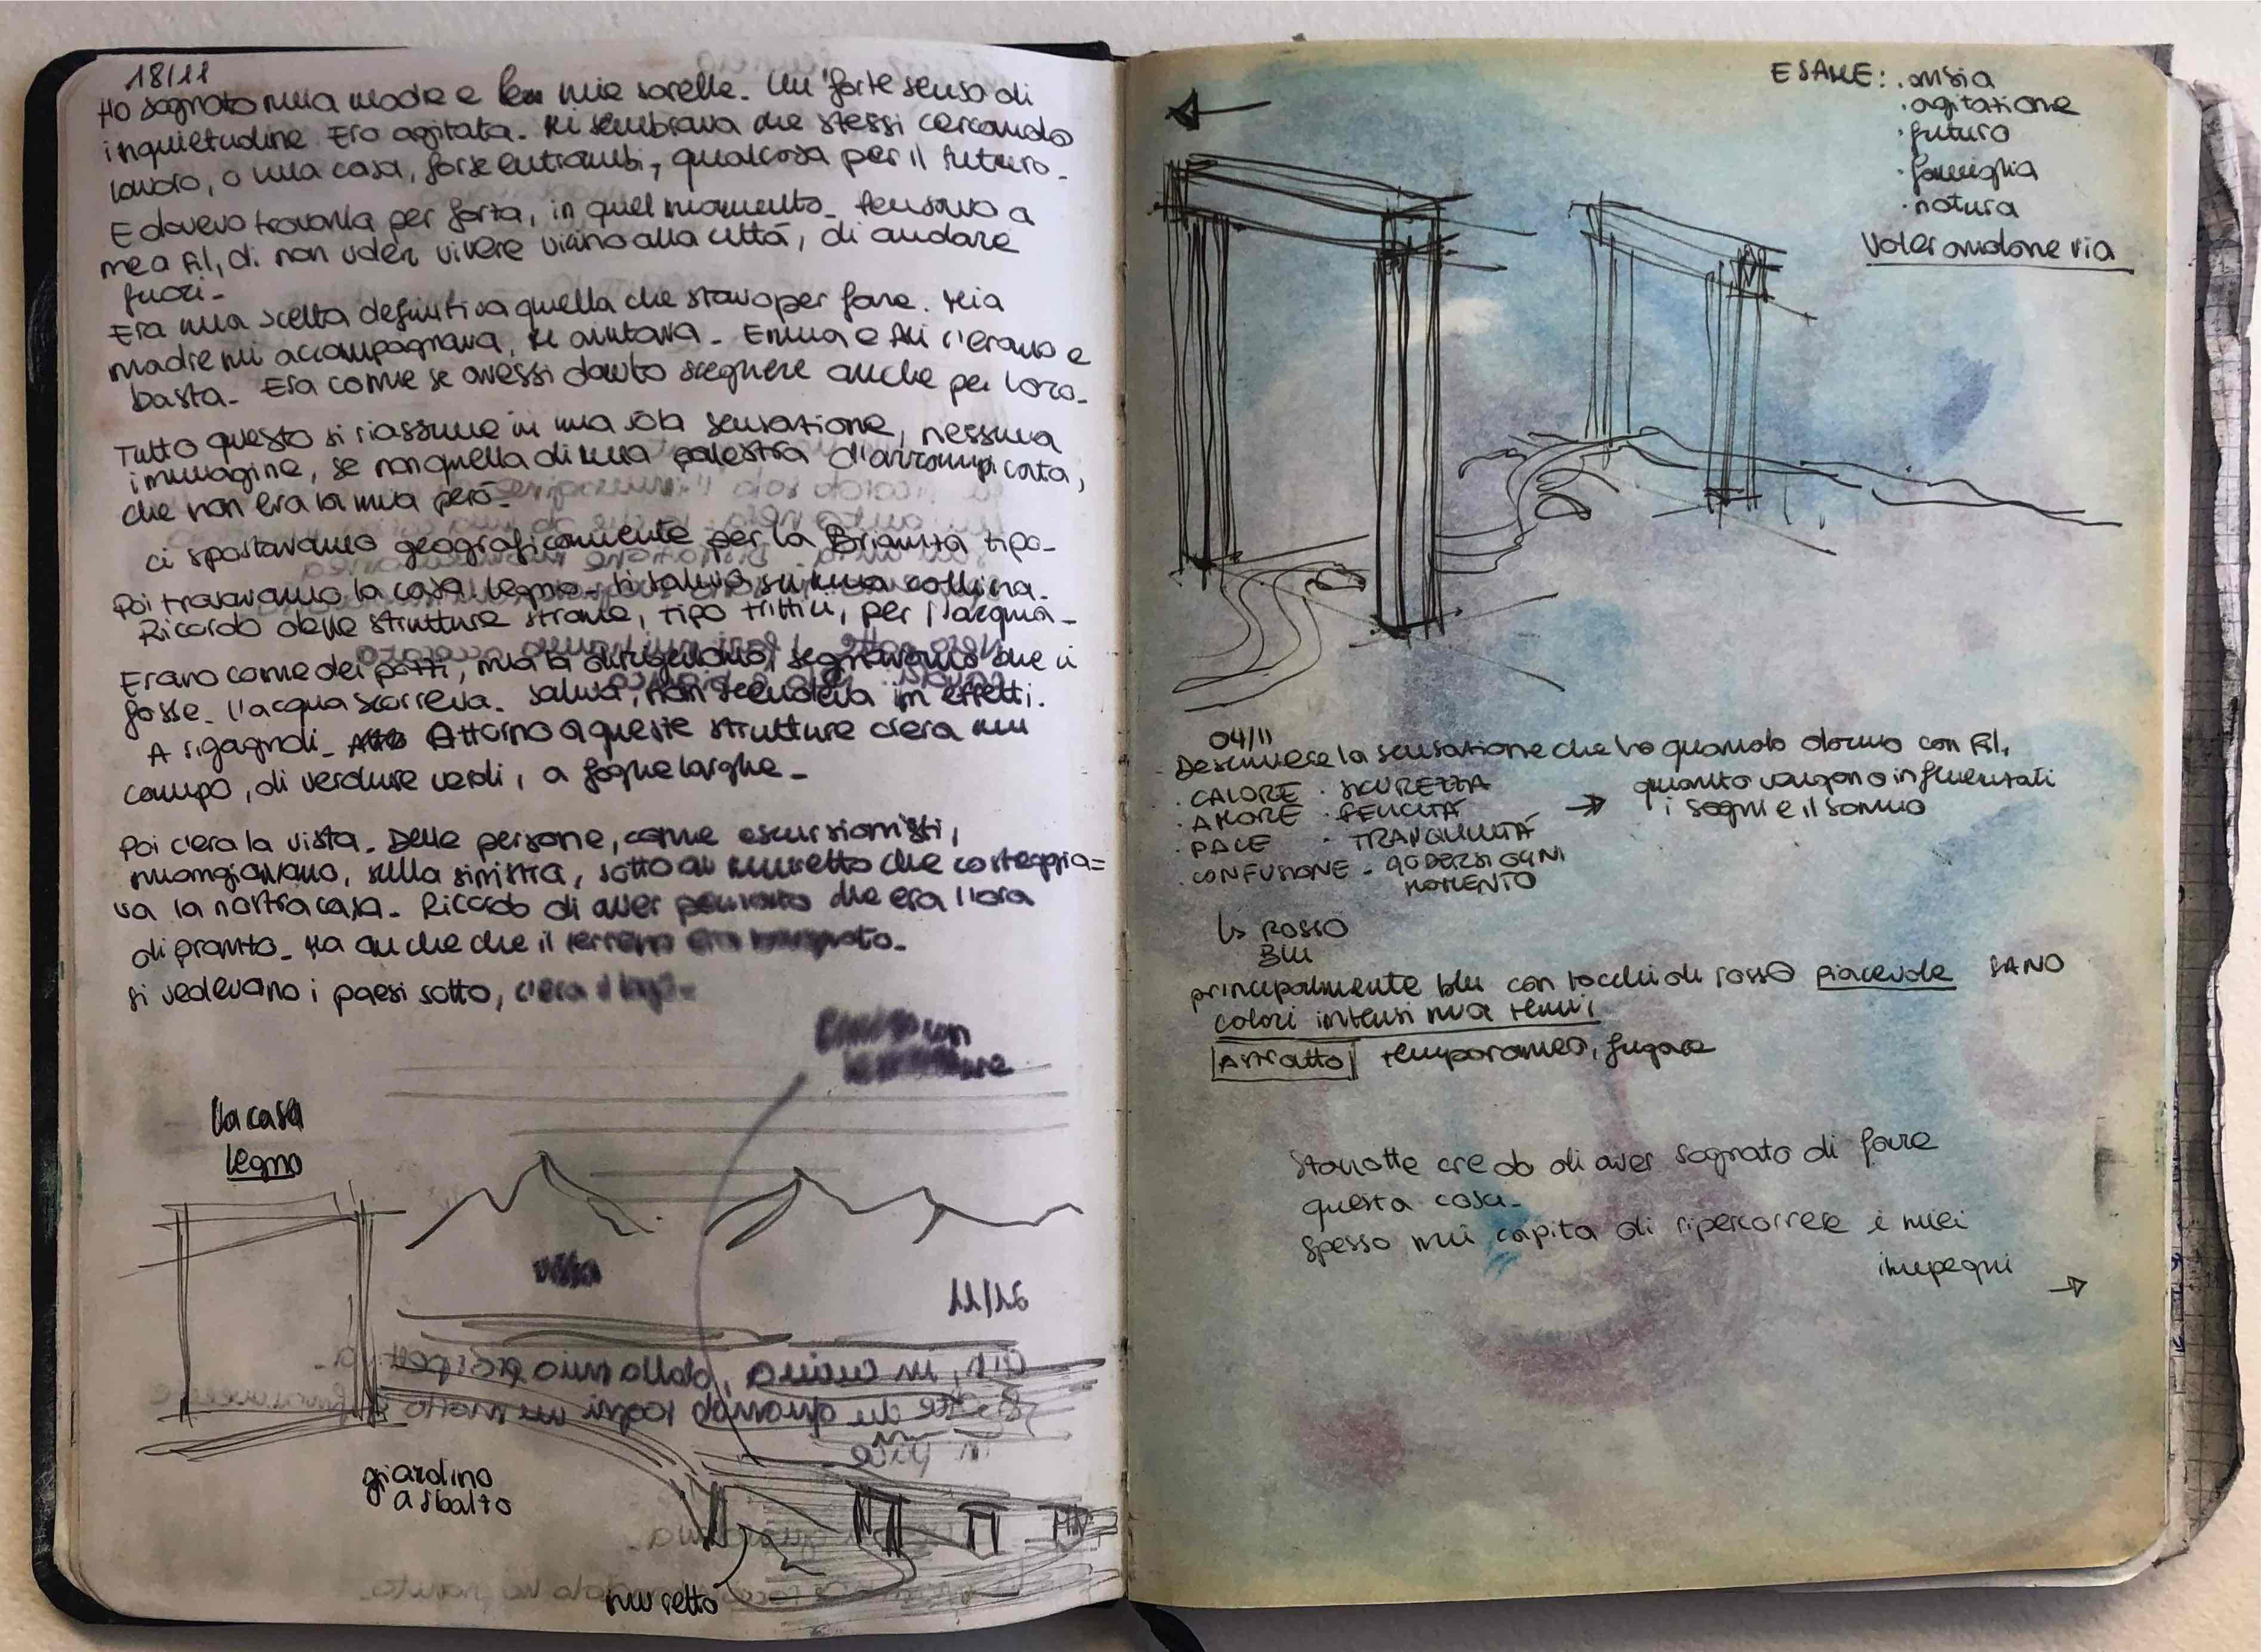 18/11
Ho sognato mia madre e le mie sorelle. Un forte senso di
inquietudine. Ero agitata. Mi sembrava che stessi cercando
lavoro, o una casa, forse entrambi, qualcosa per il futuro.
E dovevo trovarla per forza, in quel momento. Pensavo a
me a Fil, di non voler vivere vicino alla città, di andare
fuori.
Era una scelta definitiva quella che stavo per fare. Mia
madre mi accompagnava, mi aiutava. Emma e Ali c'erano e
basta. Era come se avessi dovuto scegliere anche per loro.
Tutto questo si riassume in una sola sensazione, nessuna
immagine, se non quella di una palestra d'arrampicata,
che non era la mia però.
ci spostavamo geograficamente per la Brianza tipo.
Poi trovavamo la casa legno. Si saliva su una collina.
Ricordo delle strutture strane, tipo trittici, per l'acqua.
Erano come dei pozzi, ma la dirigevano, segnavano che ci
fosse. L'acqua scorreva. Saliva, non scendeva in effetti.
A rigagnoli. Attorno a queste strutture c'era un
campo, di verdure verdi, a foglie larghe.
Poi c'era la vista. Delle persone, come escursionisti,
mangiavano, sulla sinistra, sotto al muretto che costeggia=
va la nostra casa. Ricordo di aver pensato che era l'ora
di pranzo. Ma anche che il terreno era
si vedevano i paesi sotto, c'era il lago.
Campo con
la casa
legno
vista
11/16
giardino
asfalto
muretto
ESAME: . ansia
. agitazione
. futuro
. famiglia
. natura
Voler andare via
04/11
Descrivere la sensazione che ho quando dormo con Fil,
. CALORE . SICUREZZA
. AMORE . FELICITÀ
. PACE . TRANQUILLITÀ
. CONFUSIONE - GODERSI OGNI
MOMENTO
→ quanto vengono influenzati
i sogni e il sonno
↳ ROSSO
BLU
principalmente blu con tocchi di rosso piacevole SANO
colori intensi ma tenui
Astratto temporaneo, fugace
Stanotte credo di aver sognato di fare
questa cosa.
Spesso mi capita di ripercorrere i miei
impegni →